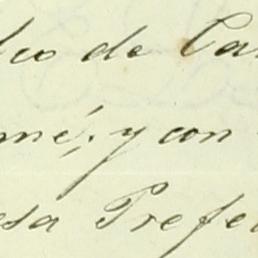 lco de Ca
mé; y con
esa Prefe